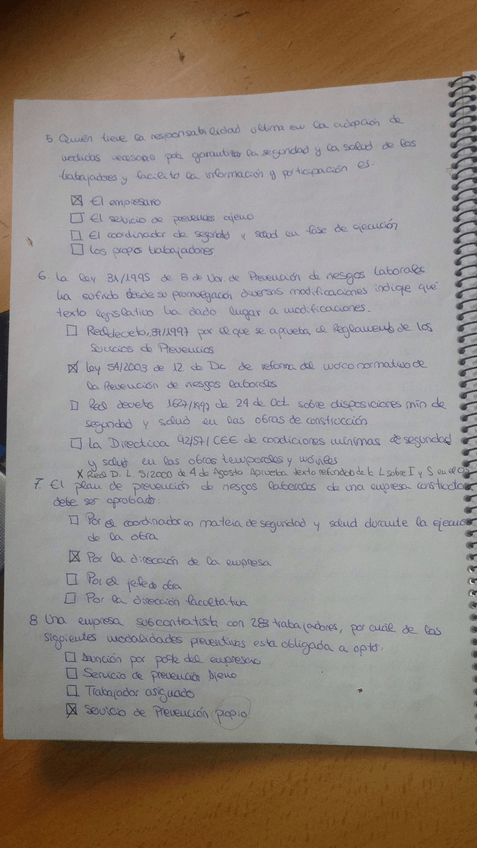 5 Quién tiene la responsabilidad ultima en la adopción de
medidas necesarias para garantizar la seguridad y la salud de los
trabajadores y facilito la información y participación es:
☒ El empresario
☐ El servicio de prevención ajeno
☐ El coordinador de seguridad y salud en fase de ejecución
☐ Los propios trabajadores
6. La ley 31/1995 de 8 de Nov. de Prevención de riesgos laborales
ha sufrido desde su promulgación diversas modificaciones indique que
texto legislativo ha dado lugar a modificaciones.
☐ Real decreto, 39/1997 por el que se aprueba el Reglamento de los
Servicios de Prevención
☒ Ley 54/2003 de 12 de Dic de reforma del marco normativo de
la Prevención de riesgos laborales
☐ Real decreto 1627/1997 de 24 de Oct. sobre disposiciones min de
seguridad y salud en las obras de construcción
☐ La Directiva 92/57/CEE de condiciones mínimas de seguridad
y salud en las obras temporales y móviles
X Real D. L. 5/2000 de 4 de Agosto Aprueba texto refundido de la L sobre I y S en el
7. El plan de prevención de riesgos laborales de una empresa constructora
debe ser aprobado:
☐ Por el coordinador en materia de seguridad y salud durante la ejecución
de la obra
☒ Por la dirección de la empresa
☐ Por el jefe de obra
☐ Por la dirección facultativa
8 Una empresa subcontratista con 283 trabajadores, por cuál de las
siguientes modalidades preventivas esta obligada a optar:
☐ por parte del empresario
☐ Servicio de prevención Ajeno
☐ Trabajador asignado
☒ Servicio de Prevención propio